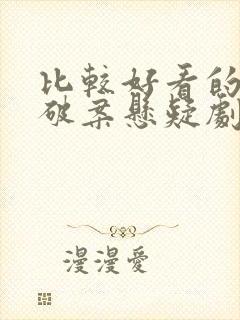 比較好看的
破案懸疑劇
漫漫愛